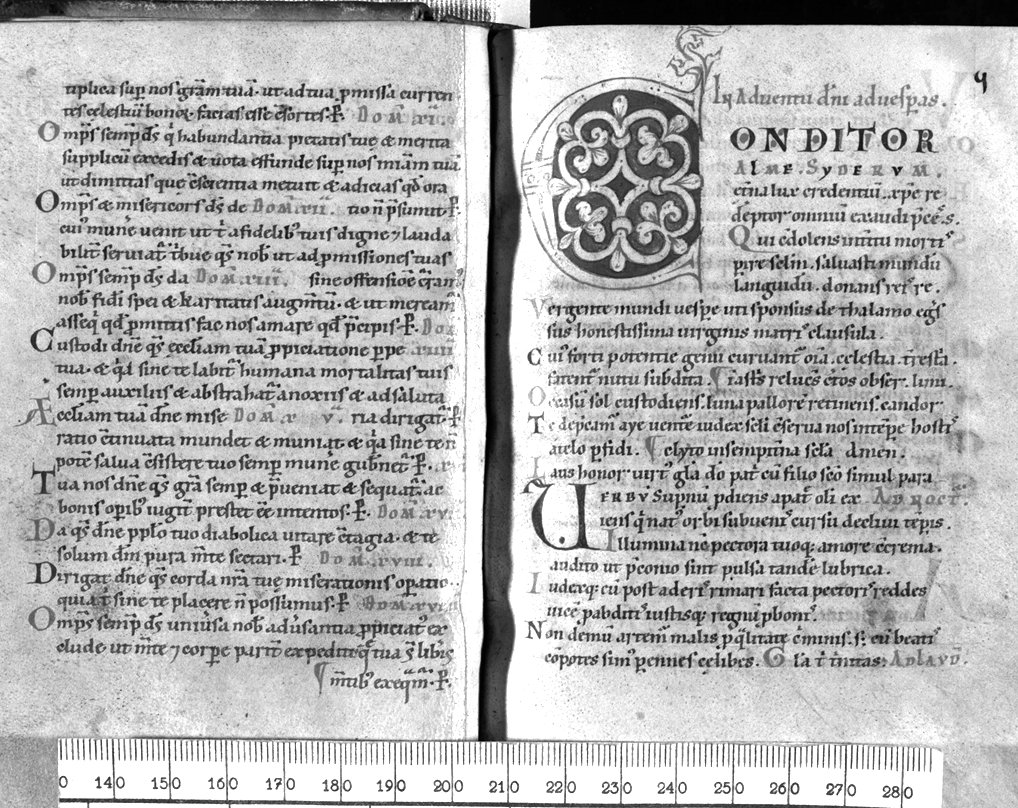 tiplica sup̄ nos grām tuā. ut ad tua p̱missa curren
tes cęlestiū bonoꝝ facias esse c̄sortes. P̱. Dom̄ xi.
Omp̄s semp̄ d̄s q habundantia pietatis tuę & merita
supplicū excedis & uota effunde sup̄ nos miām tuā
ut dimittas que c̄scientia metuit & adicias qd̄ ora
Omp̄s & misericors d̄s de Dom̄. xii. tio n̄ p̄sumit. P̱.
cui' mun̄e uenit ut t' a fidelib' tuis digne ⁊ lauda
bilit̄ seruiat̄ t̄bue q̄s nob' ut ad p̱missiones tuas
Omp̄s semp̄ d̄s da Dom̄. xiii. sine offensiōe c̄ram'
nob' fidī spei & karitatis augm̄tū. & ut meream̄
asseq̄ qd̄ p̱mittis fac nos amare qd̄ p̄cipis. P̱. Dom
Custodi dn̄e q̄s ęccl̄iam tuā p̱piciatione p̱pe xiiii
tua. & q̄a sine te labit̄ humana mortalitas tuis
semp̄ auxiliis & abstrahat̄ a noxiis & ad saluta
Æccl̄iam tuā dn̄e mise Dom̄. x v. ria dirigat̄. P̱
ratio c̄tinuata mundet & muniat & q̄a sine te n̄
potē salua c̄sistere tuo semp̄ mun̄e gub̄net̄. P̱.
Tua nos dn̄e q̄s grā semp̄ & p̄ueniat & sequat̄. ac
bonis opib' iugit̄ prestet eē intentos. P̱. Dom̄. xv
Da q̄s dn̄e pplo tuo diabolica uitare c̄tagia. & te
solum dm̄ pura m̄te sectari. P̱ Dom̄. xviii.
Dirigat dn̄e q̄s corda nr̄a tuę miserationis opatio.
quia t' sine te placere n̄ possumus. P̱ Dom̄. xvi
Omp̄s semp̄ d̄s uniu̇sa nob' adu̇santia p̱piciat' ex
clude ut m̄te ⁊ corpe parit̄ expediti q̄ tua s̄ libis
m̄tib' exeq̄m̄. P̱.
In Aduentu dn̄i ad uesp̱as.
CONDITOR
Alme. Syderum.
et̄na lux credentiū. xp̄e re
dēptor omniū exaudi p̄ces.
Qui c̄dolens int̄itu morti'
pire sclm̄. saluasti mundū
languidū. donans reis re.
Vergente mundi uesp̱e uti sponsus de thalamo egs̄
sus honestissima uirginis matri' clausula.
Cui' forti potentię genu curuant̄ oīa. cęlestia. t̄restia.
fatent̄ nutu subdita. Casus reluc̄s
Occasū sol custodiens. luna pallorē retinens. candor
Te dep̄cam' aye uent̄e iudex scli c̄serua nos int̄epe hosti'
a telo p̱fidi. Celyto in sempit̄na sc̄la amen.
Laus honor uirt' glā dō pat' cū filio scō simul para
Verbv Supnū pdiens a pat̄ oli ex Ad noct̄.
iens q' nat' orbi subueni' cursū decliui tēpis.
Illumina nc̄ pectora tuoq; amore c̄crema.
audito ut p̱conio sint pulsa tandē lubrica.
Iudexq; cū post aderi' rimari facta pectori' reddes
uicē p̱ abditi' iustisq; regnū p̱ boni'.
Non demū artem̄ malis p̱ q̄litate c̄minis. s; cū beati'
cōpotes sim' p̱ennes cęlibes. Glā t' t̄nitas. Ad Lavd'.
130 140 150 160 170 180 190 200 210 220 230 240 250 260 270 280